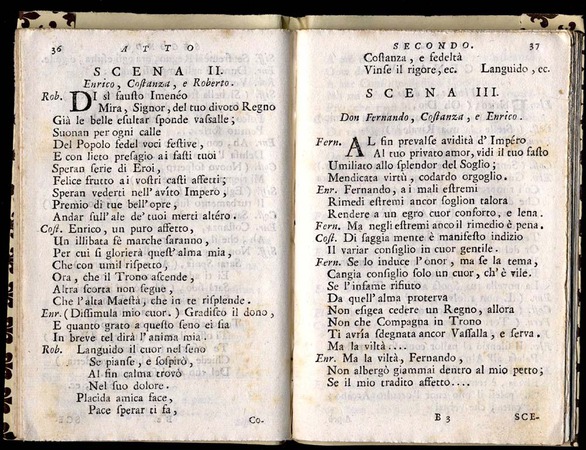 36 ATTO
SCENA II.
Enrico, Costanza, e Roberto.
Rob. DI sì fausto Imenéo
Mira, Signor, del tuo divoto Regno
Già le belle esultar sponde vassalle;
Suonan per ogni calle
Del Popolo fedel voci festive,
E con lieto presagio ai fasti tuoi
Speran serie di Eroi,
Felice frutto ai vostri casti affetti;
Speran vederti nell'avito Impero,
Premio di tue bell'opre,
Andar sull'ale de' tuoi merti altéro.
Cost. Enrico, un puro affetto,
Un illibata fè marche saranno,
Per cui si glorierà quest'alma mia,
Che con umil rispetto,
Ora, che il Trono ascende,
Altra scorta non segue,
Che l'alta Maestà, che in te risplende.
Enr. (Dissimula mio cuor.) Gradisco il dono,
E quanto grato a questo seno ei sia
In breve tel dirà l'anima mia.
Rob. Languido il cuor nel seno
Se pianse, e sospirò,
Al fin calma trovò
Nel suo dolore.
Placida amica face,
Pace sperar ti fa,
Co-
SECONDO. 37
Costanza, e fedeltà
Vinse il rigore, ec. Languido, ec.
SCENA III.
Don Fernando, Costanza, e Enrico.
Fern. AL fin prevalse avidità d'Impéro
Al tuo privato amor, vidi il tuo fasto
Umiliato allo splendor del Soglio;
Mendicata virtù, codardo orgoglio.
Enr. Fernando, a i mali estremi
Rimedi estremi ancor soglion talora
Rendere a un egro cuor conforto, e lena.
Fern. Ma negli estremi anco il rimedio è pena.
Cost. Di saggia mente è manifesto indizio
Il variar consiglio in cuor gentile.
Fern. Se lo induce l'onor, ma se la tema,
Cangia consiglio solo un cuor, ch'è vile.
Se l'insame rifiuto
Da quell'alma proterva
Non esigea cedere un Regno, allora
Non che Compagna in Trono
Ti avria sdegnata ancor Vassalla, e serva.
Ma la viltà....
Enr. Ma la viltà, Fernando,
Non albergò giammai dentro al mio petto;
Se il mio tradito affetto....
E 3 SCE-